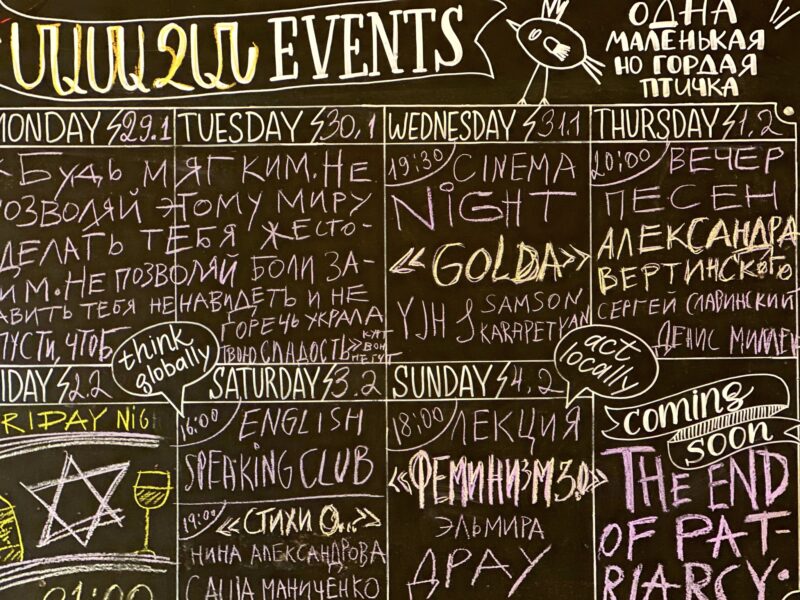 EVENTS
ОДНА
МАЛЕНЬКАЯ
НО ГОРДАЯ
ПТИЧКА
MONDAY 29.1
«БУДЬ МЯГКИМ. НЕ
ПОЗВОЛЯЙ ЭТОМУ МИРУ
ДЕЛАТЬ ТЕБЯ ЖЕСТО-
ИМ. НЕ ПОЗВОЛЯЙ БОЛИ ЗА-
АВИТЬ ТЕБЯ НЕНАВИДЕТЬ И НЕ
ПУСТИ, ЧТОБ ГОРЕЧЬ УКРАЛА
ТВОЮ СЛАДОСТЬ»
КУРТ
ВОН
НЕГУТ
TUESDAY 30.1
WEDNESDAY 31.1
19:30 CINEMA
NIGHT
«GOLDA»
YJH & SAMSON
KARAPETYAN
THURSDAY 1.2
20:00 ВЕЧЕР
ПЕСЕН
АЛЕКСАНДРА
ВЕРТИНСКОГО
СЕРГЕЙ СЛАВИНСКИЙ
ДЕНИС
think
globally
act
locally
IDAY 2.2
FRIDAY NIG
21:00
SATURDAY 3.2
16:00 ENGLISH
SPEAKING CLUB
19:00 «СТИХИ О...»
НИНА АЛЕКСАНДРОВА
САША МАНИЧЕНКО
SUNDAY 4.2
18:00 ЛЕКЦИЯ
«ФЕМИНИЗМ 3.0»
ЭЛЬМИРА
ДРАУ
coming
soon
THE END
OF PAT-
RIARCY: